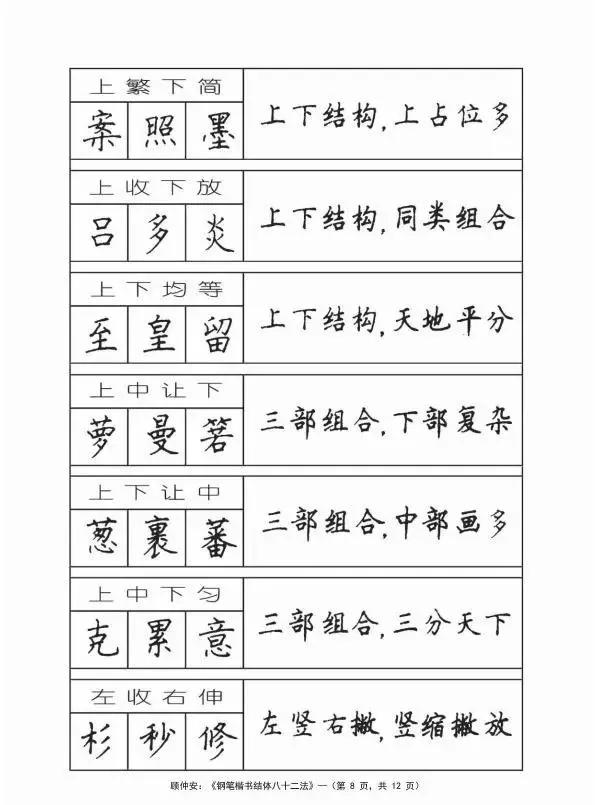 上繁下简
案照墨
上下结构,上占位多
上收下放
吕多炎
上下结构,同类组合
上下均等
至皇留
上下结构,天地平分
上中让下
萝曼箬
三部组合,下部复杂
上下让中
葱裹蕃
三部组合,中部画多
上中下匀
克累意
三部组合,三分天下
左收右伸
杉秒修
左竖右撇,竖缩撇放
顾仲安:《钢笔楷书结体八十二法》—(第 8 页,共 12 页)